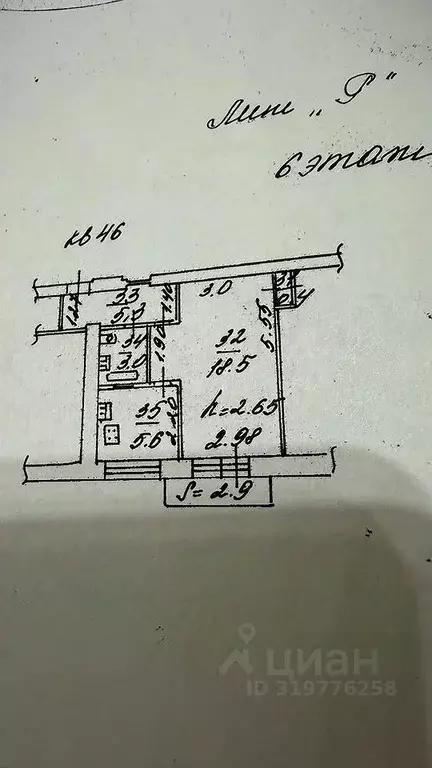 Лит „Р"
6 этаж
кв 46
3.0
33
5.3
1.40
34
3.0
1.90
32
18.5
5.55
35
5.6
h=2.65
2.98
S= 2.9
циан
ID 319776258